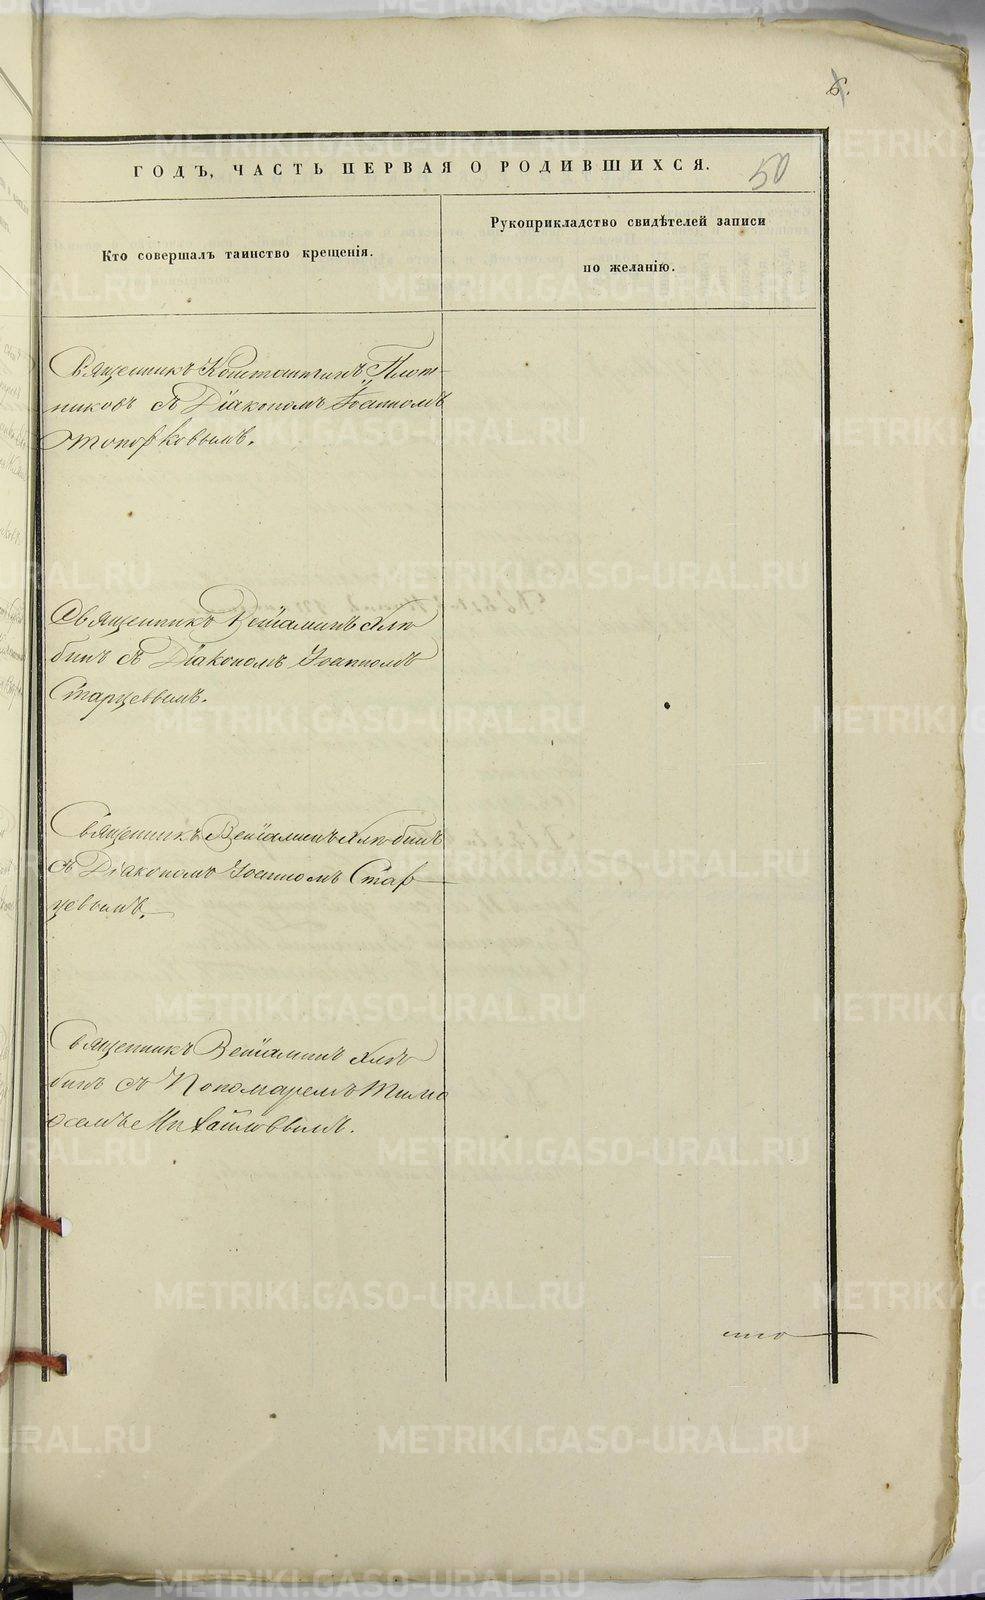 6.
ГОДЪ, ЧАСТЬ ПЕРВАЯ О РОДИВШИХСЯ.
50
Кто совершалъ таинство крещенія.
Рукоприкладство свидѣтелей записи
по желанію.
Священникъ Константинъ Плот-
никовъ съ Діакономъ Іоанномъ
Топорковымъ.
Священникъ Веніаминъ Хлю
бинъ съ Діакономъ Іоанномъ
Старцевымъ.
Священникъ Веніаминъ Хлюбинъ
съ Діакономъ Іоанномъ Стар
цевымъ.
Священникъ Веніаминъ Хлю
бинъ съ Пономаремъ Тимо
ѳеемъ Михайловымъ.
METRIKI.GASO-URAL.RU